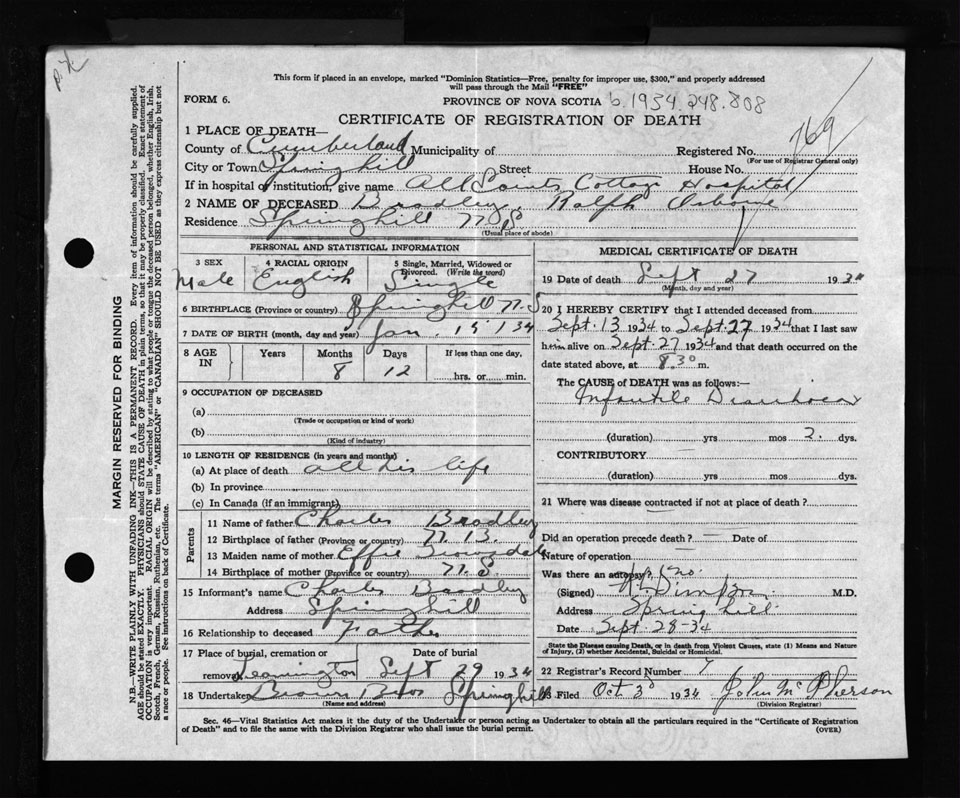 This form if placed in an envelope, marked "Dominion Statistics—Free, penalty for improper use, $300," and properly addressed
will pass through the Mail "FREE"
FORM 6.
PROVINCE OF NOVA SCOTIA b.1934.248.808
CERTIFICATE OF REGISTRATION OF DEATH
769
1 PLACE OF DEATH—
County of Cumberland Municipality of Registered No.
(For use of Registrar General only)
City or Town Springhill Street House No.
If in hospital or institution, give name All Saints Cottage Hospital
2 NAME OF DECEASED Bradley, Ralph Osborne
Residence Springhill N.S
(Usual place of abode)
PERSONAL AND STATISTICAL INFORMATION
3 SEX 4 RACIAL ORIGIN 5 Single, Married, Widowed or
Divorced. (Write the word)
Male English Single
6 BIRTHPLACE (Province or country) Springhill N.S
7 DATE OF BIRTH (month, day and year) Jan. 15 1934
8 AGE IN Years Months Days If less than one day,
8 12 hrs. or min.
9 OCCUPATION OF DECEASED
(a)
(Trade or occupation or kind of work)
(b)
(Kind of industry)
10 LENGTH OF RESIDENCE (in years and months)
(a) At place of death all his life
(b) In province
(c) In Canada (if an immigrant)
Parents
11 Name of father Charles Bradley
12 Birthplace of father (Province or country) N.B.
13 Maiden name of mother Effie
14 Birthplace of mother (Province or country) N.S.
15 Informant's name Charles Bradley
Address Springhill
16 Relationship to deceased Father
17 Place of burial, cremation or Date of burial
removal Leamington Sept 29 1934
18 Undertaker Brown Bros Springhill
(Name and address)
MEDICAL CERTIFICATE OF DEATH
19 Date of death Sept 27 1934
(Month, day and year)
20 I HEREBY CERTIFY that I attended deceased from
Sept. 13 1934 to Sept. 27 1934 that I last saw
him alive on Sept. 27 1934 and that death occurred on the
date stated above, at 8.30 m.
The CAUSE of DEATH was as follows:—
Infantile Diarrhoea
(duration) yrs mos 2. dys.
CONTRIBUTORY
(duration) yrs mos dys.
21 Where was disease contracted if not at place of death?
Did an operation precede death? — Date of
Nature of operation
Was there an autopsy? no.
(Signed) M.D.
Address Springhill
Date Sept-28-34
State the Disease causing Death, or in death from Violent Causes, state (1) Means and Nature
of Injury, (2) whether Accidental, Suicidal or Homicidal.
22 Registrar's Record Number 7
23 Filed Oct 3d 1934 John McPherson
(Division Registrar)
Sec. 46—Vital Statistics Act makes it the duty of the Undertaker or person acting as Undertaker to obtain all the particulars required in the "Certificate of Registration
of Death" and to file the same with the Division Registrar who shall issue the burial permit.
(OVER)
MARGIN RESERVED FOR BINDING
N.B.—WRITE PLAINLY WITH UNFADING INK—THIS IS A PERMANENT RECORD. Every item of information should be carefully supplied.
AGE should be stated EXACTLY. PHYSICIANS should STATE CAUSE OF DEATH in plain terms, so that it may be properly classified. Exact statement of
OCCUPATION is very important. RACIAL ORIGIN will be described by stating to what people or tongue the deceased person belonged, whether English, Irish,
Scotch, French, German, Russian, Ruthenian, etc. The terms "AMERICAN" or "CANADIAN" SHOULD NOT BE USED as they express citizenship but not
a race or people. See instructions on back of Certificate.